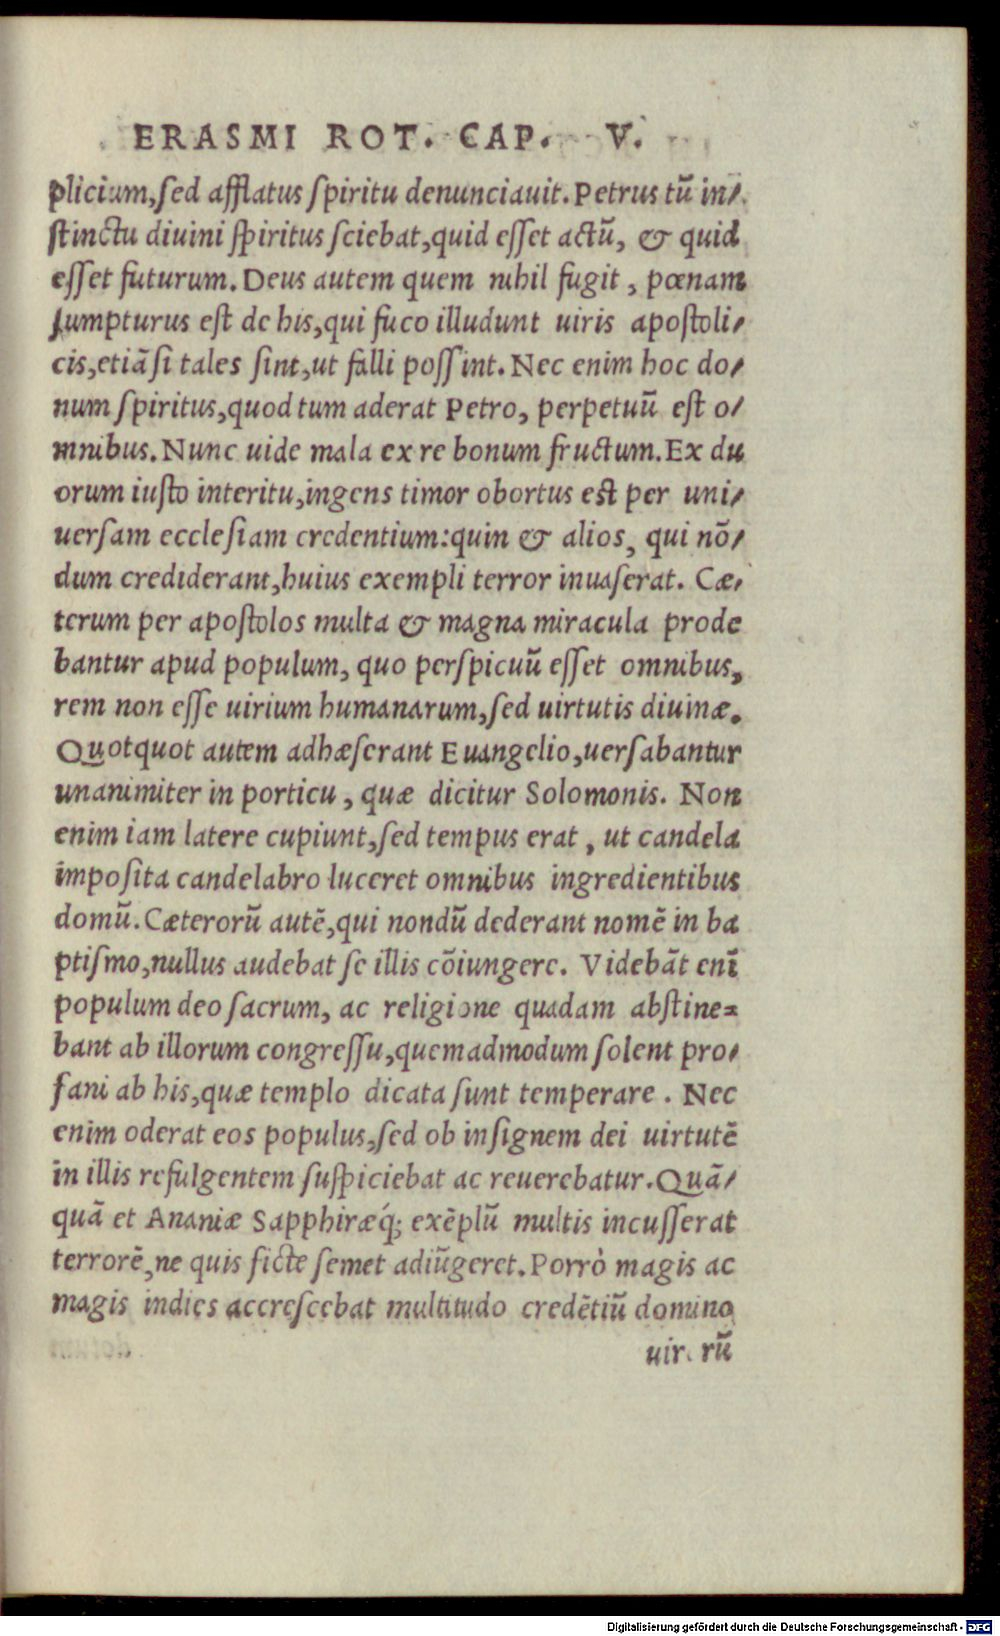 ERASMI ROT. CAP. V.
plicium, sed afflatus spiritu denunciauit. Petrus tū in/
stinctu diuini spiritus sciebat, quid esset actū, & quid
esset futurum. Deus autem quem nihil fugit, pœnam
sumpturus est de his, qui fuco illudunt uiris apostoli/
cis, etiāsi tales sint, ut falli possint. Nec enim hoc do/
num spiritus, quod tum aderat Petro, perpetuū est o/
mnibus. Nunc uide mala ex re bonum fructum. Ex du
orum iusto interitu, ingens timor obortus est per uni/
uersam ecclesiam credentium: quin & alios, qui nō/
dum crediderant, huius exempli terror inuaserat. Cæ/
terum per apostolos multa & magna miracula prode
bantur apud populum, quo perspicuū esset omnibus,
rem non esse uirium humanarum, sed uirtutis diuinæ.
Quotquot autem adhæserant Euangelio, uersabantur
unanimiter in porticu, quæ dicitur Solomonis. Non
enim iam latere cupiunt, sed tempus erat, ut candela
imposita candelabro luceret omnibus ingredientibus
domū. Cæterorū autē, qui nondū dederant nomē in ba
ptismo, nullus audebat se illis cōiungere. Videbāt enī
populum deo sacrum, ac religione quadam abstine=
bant ab illorum congressu, quemadmodum solent pro/
fani ab his, quæ templo dicata sunt temperare. Nec
enim oderat eos populus, sed ob insignem dei uirtutē
in illis refulgentem suspiciebat ac reuerebatur. Quā/
quā et Ananiæ Sapphiræq́; exēplū multis incusserat
terrorē, ne quis ficte semet adiūgeret. Porrò magis ac
magis indies accrescebat multitudo credētiū domino
uirorū
Digitalisierung gefördert durch die Deutsche Forschungsgemeinschaft - DFG